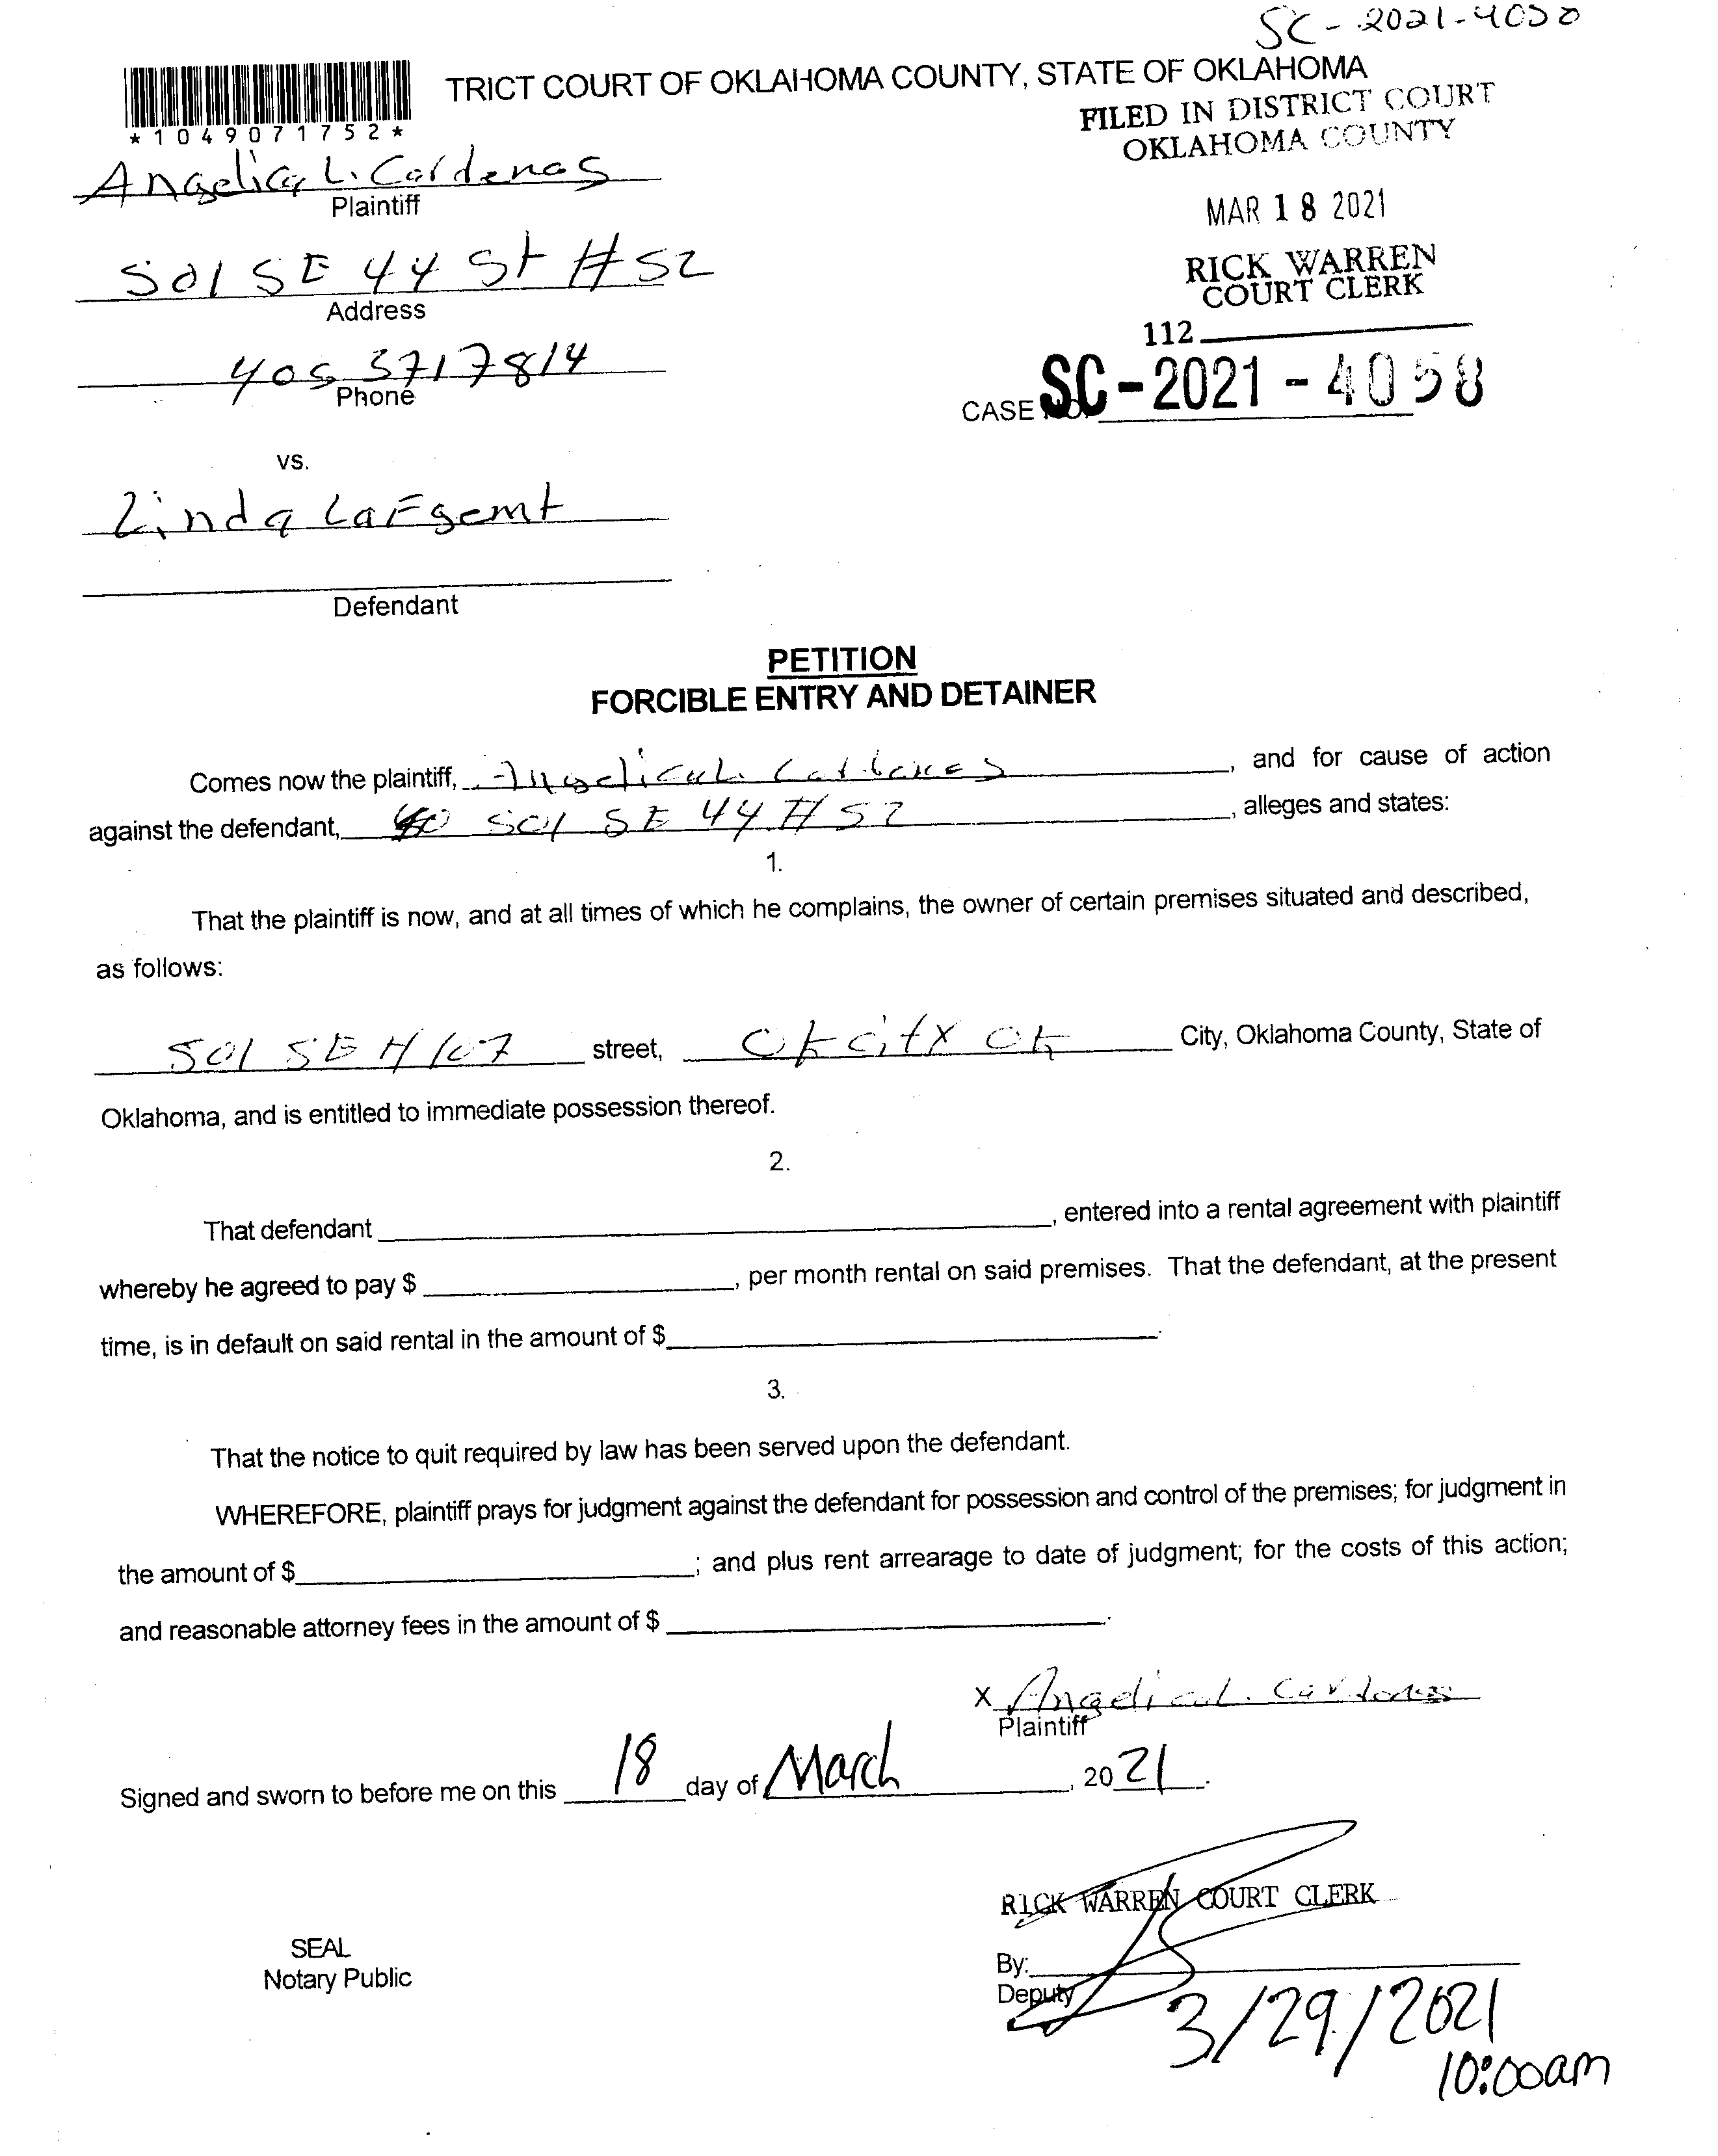 SC-2021-4050
TRICT COURT OF OKLAHOMA COUNTY, STATE OF OKLAHOMA
*1049071752*
FILED IN DISTRICT COURT
OKLAHOMA COUNTY
Angelica L. Cardenas
Plaintiff
MAR 18 2021
501 SE 44 St #52
Address
RICK WARREN
COURT CLERK
405 3717814
Phone
112
CASE NO. SC-2021-4058
vs.
Linda
Defendant
PETITION
FORCIBLE ENTRY AND DETAINER
Comes now the plaintiff, Angelica L. Cardenas, and for cause of action
against the defendant, 501 SE 44 #52, alleges and states:
1.
That the plaintiff is now, and at all times of which he complains, the owner of certain premises situated and described,
as follows:
501 SE # 107 street, Ok city Ok City, Oklahoma County, State of
Oklahoma, and is entitled to immediate possession thereof.
2.
That defendant, entered into a rental agreement with plaintiff
whereby he agreed to pay $, per month rental on said premises. That the defendant, at the present
time, is in default on said rental in the amount of $.
3.
That the notice to quit required by law has been served upon the defendant.
WHEREFORE, plaintiff prays for judgment against the defendant for possession and control of the premises; for judgment in
the amount of $; and plus rent arrearage to date of judgment; for the costs of this action;
and reasonable attorney fees in the amount of $.
X Angelica L. Cardenas
Plaintiff
Signed and sworn to before me on this 18 day of March, 2021.
RICK WARREN COURT CLERK
SEAL
Notary Public
By:
Deputy
3/29/2021
10:00am